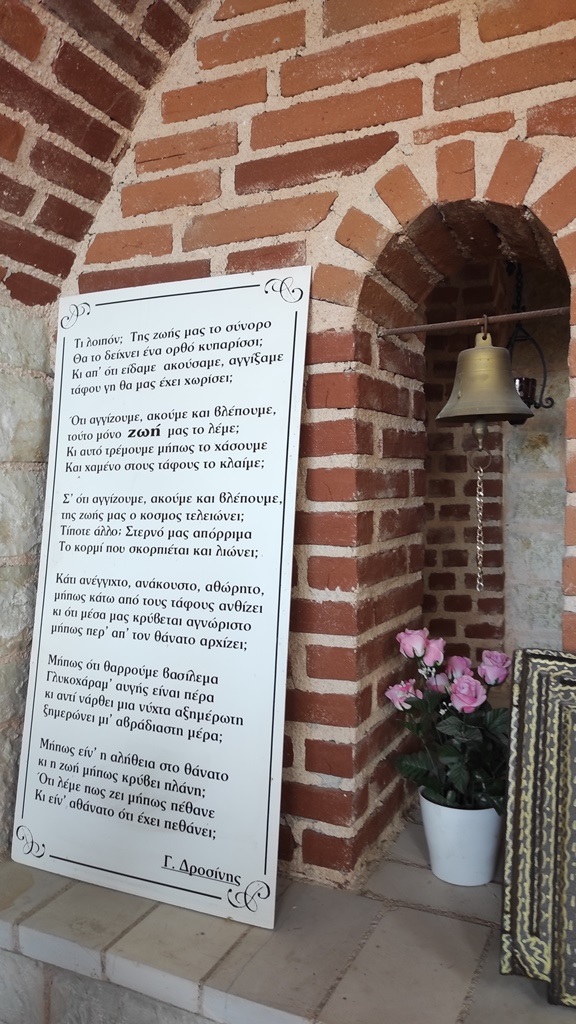 Τι λοιπόν; Της ζωής μας το σύνορο
Θα το δείχνει ένα ορθό κυπαρίσσι;
Κι απ' ότι είδαμε ακούσαμε, αγγίξαμε
τάφου γη θα μας έχει χωρίσει;
Ότι αγγίζουμε, ακούμε και βλέπουμε,
τούτο μόνο ζωή μας το λέμε;
Κι αυτό τρέμουμε μήπως το χάσουμε
Και χαμένο στους τάφους το κλαίμε;
Σ' ότι αγγίζουμε, ακούμε και βλέπουμε,
της ζωής μας ο κοσμος τελειώνει;
Τίποτε άλλο; Στερνό μας απόρριμα
Το κορμί που σκορπιέται και λιώνει;
Κάτι ανέγγιχτο, ανάκουστο, αθώρητο,
μήπως κάτω από τους τάφους ανθίζει
κι ότι μέσα μας κρύβεται αγνώριστο
μήπως περ' απ' τον θάνατο αρχίζει;
Μήπως ότι θαρρούμε βασίλεμα
Γλυκοχάραμ' αυγής είναι πέρα
κι αντί νάρθει μια νύχτα αξημέρωτη
ξημερώνει μι' αβράδιαστη μέρα;
Μήπως είν' η αλήθεια στο θάνατο
κι η ζωή μήπως κρύβει πλάνη;
Ότι λέμε πως ζει μήπως πέθανε
Κι είν' αθάνατο ότι έχει πεθάνει;
Γ. Δροσίνης